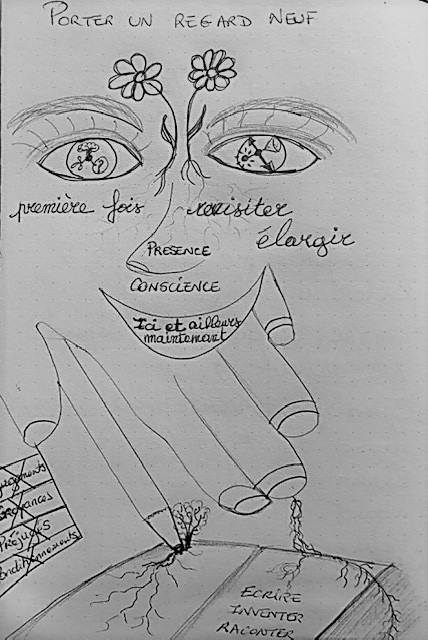 PORTER UN REGARD NEUF
première fois
revisiter
élargir
PRESENCE
CONSCIENCE
Ici et ailleurs
maintenant
Jugements
Croyances
Préjugés
Conditionnements
ECRIRE
INVENTER
RACONTER